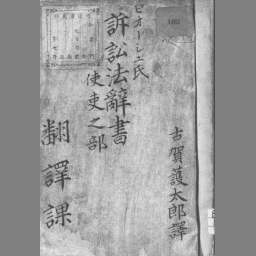 ビオーシェ氏
訴訟法辭書
使吏之部
古賀護太郎譯
翻譯課